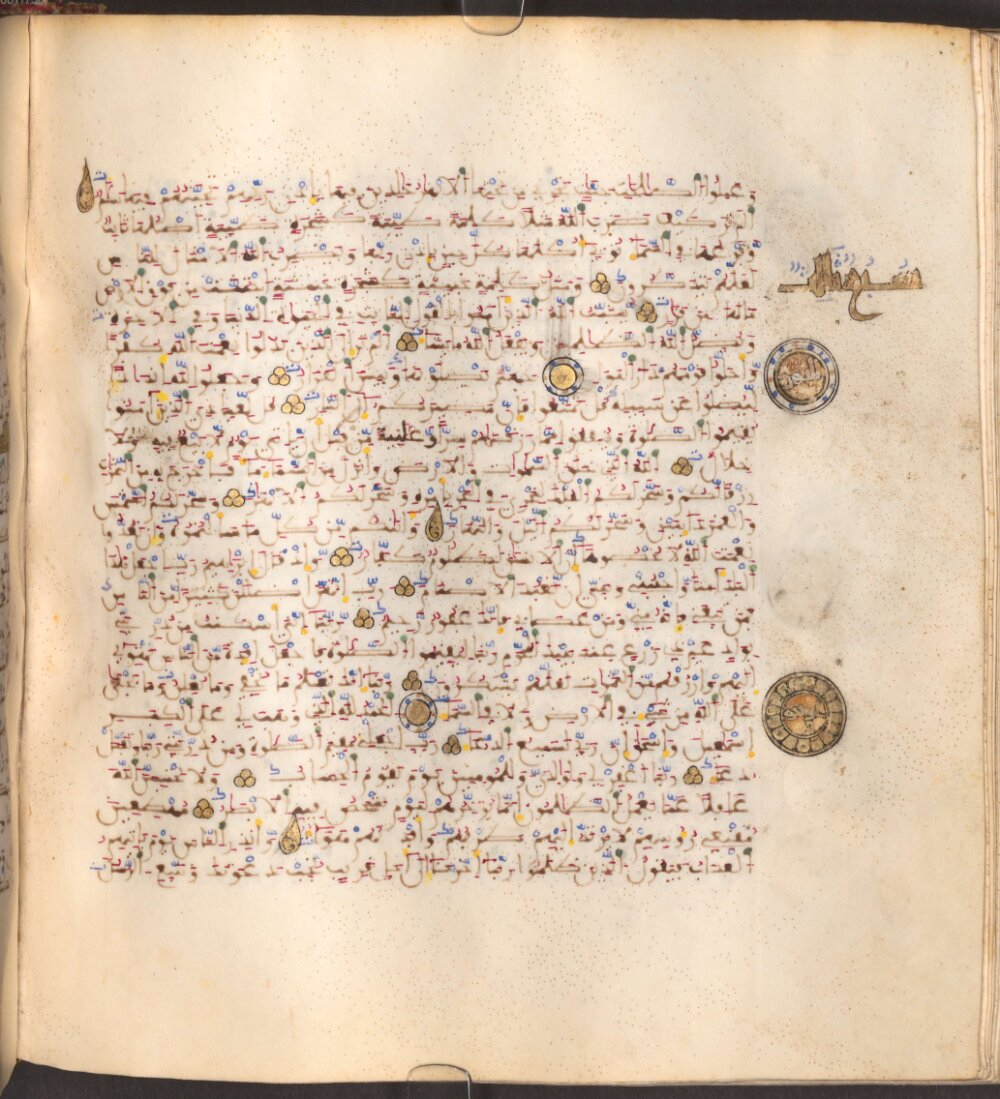 وعملوا الصلحت جنت تجري من تحتها الانهر خلدين فيها باذن ربهم تحيتهم فيها سلم
الم تر كيف ضرب الله مثلا كلمة طيبة كشجرة طيبة اصلها ثابت
وفرعها في السماء توتي اكلها كل حين باذن ربها ويضرب الله الامثال للناس
لعلهم يتذكرون ومثل كلمة خبيثة كشجرة خبيثة اجتثت من فوق الارض
ما لها من قرار يثبت الله الذين امنوا بالقول الثابت في الحيوة الدنيا وفي الاخرة
ويضل الله الظلمين ويفعل الله ما يشاء الم تر الى الذين بدلوا نعمت الله كفرا
واحلوا قومهم دار البوار جهنم يصلونها وبيس القرار وجعلوا لله اندادا
ليضلوا عن سبيله قل تمتعوا فان مصيركم الى النار قل لعبادي الذين امنوا
يقيموا الصلوة وينفقوا مما رزقنهم سرا وعلنية من قبل ان ياتي يوم لا بيع فيه ولا
خلال الله الذي خلق السموات والارض وانزل من السماء ماء فاخرج به من الثمرت
رزقا لكم وسخر لكم الفلك لتجري في البحر بامره وسخر لكم الانهر وسخر لكم الشمس
والقمر دائبين وسخر لكم اليل والنهار واتيكم من كل ما سالتموه وان تعدوا
نعمت الله لا تحصوها ان الانسن لظلوم كفار واذ قال ابرهيم رب اجعل هذا
البلد امنا واجنبني وبني ان نعبد الاصنام رب انهن اضللن كثيرا من الناس
فمن تبعني فانه مني ومن عصاني فانك غفور رحيم ربنا اني اسكنت من ذريتي
بواد غير ذي زرع عند بيتك المحرم ربنا ليقيموا الصلوة فاجعل افئدة من الناس تهوي
اليهم وارزقهم من الثمرات لعلهم يشكرون ربنا انك تعلم ما نخفي وما نعلن وما يخفى
على الله من شيء في الارض ولا في السماء الحمد لله الذي وهب لي على الكبر
اسمعيل واسحق ان ربي لسميع الدعاء رب اجعلني مقيم الصلوة ومن ذريتي ربنا وتقبل
دعاء ربنا اغفر لي ولوالدي وللمومنين يوم يقوم الحساب ولا تحسبن الله
غفلا عما يعمل الظلمون انما يوخرهم ليوم تشخص فيه الابصر مهطعين
مقنعي روسهم لا يرتد اليهم طرفهم وافئدتهم هواء وانذر الناس يوم ياتيهم
العذاب فيقول الذين ظلموا ربنا اخرنا الى اجل قريب نجب دعوتك ونتبع الرسل